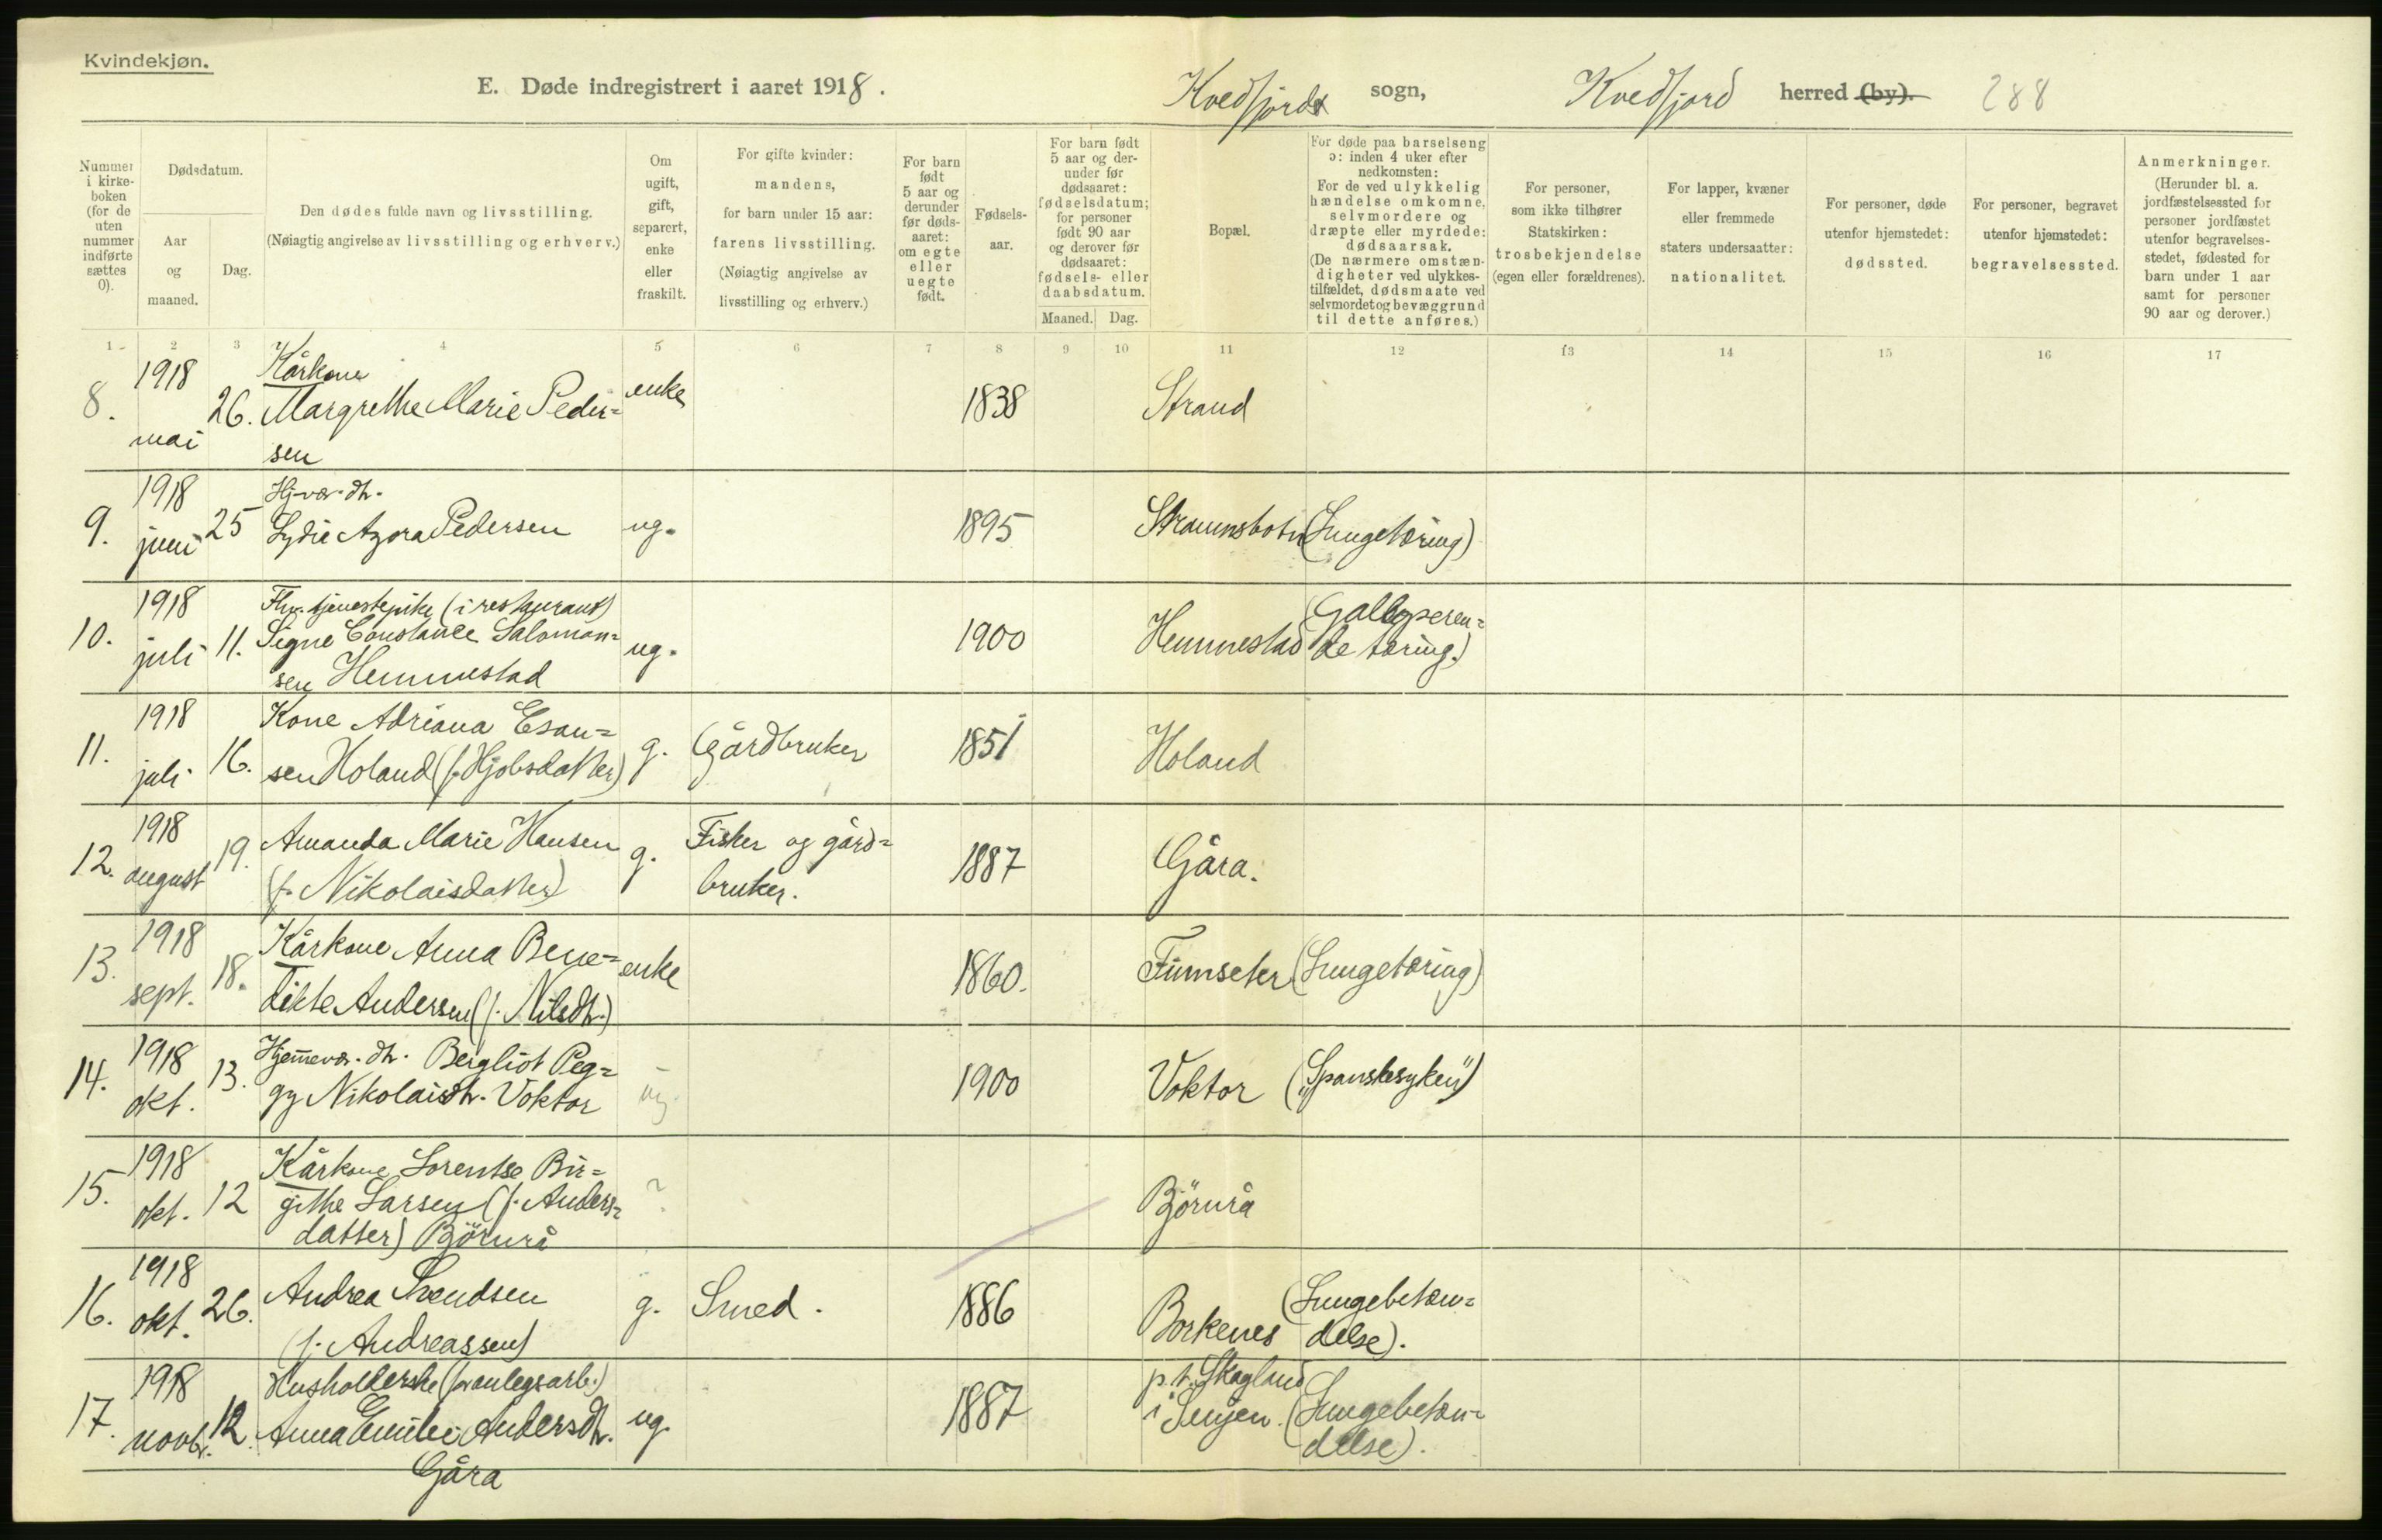 Kvindekjøn.
E. Døde indregistrert i aaret 1918.
Kvedfjords sogn, Kvedfjord herred (by). 288
Nummer i kirkeboken (for de uten nummer indførte sættes 0).
Dødsdatum.
Aar og maaned.
Dag.
Den dødes fulde navn og livsstilling.
(Nøiagtig angivelse av livsstilling og erhverv.)
Om ugift, gift, separert, enke eller fraskilt.
For gifte kvinder: mandens, for barn under 15 aar: farens livsstilling.
(Nøiagtig angivelse av livsstilling og erhverv.)
For barn født 5 aar og derunder før dødsaaret: om egte eller uegte født.
Fødselsaar.
For barn født 5 aar og derunder før dødsaaret: fødselsdatum; for personer født 90 aar og derover før dødsaaret: fødsels- eller daabsdatum.
Maaned. Dag.
Bopæl.
For døde paa barselseng ɔ: inden 4 uker efter nedkomsten:
For de ved ulykkelig hændelse omkomne, selvmordere og dræpte eller myrdede: dødsaarsak.
(De nærmere omstændigheter ved ulykkestilfældet, dødsmaate ved selvmordet og bevæggrund til dette anføres.)
For personer, som ikke tilhører Statskirken: trosbekjendelse (egen eller forældrenes).
For lapper, kvæner eller fremmede staters undersaatter: nationalitet.
For personer, døde utenfor hjemstedet: dødssted.
For personer, begravet utenfor hjemstedet: begravelsessted.
Anmerkninger.
(Herunder bl. a. jordfæstelsessted for personer jordfæstet utenfor begravelsesstedet, fødested for barn under 1 aar samt for personer 90 aar og derover.)
1 2 3 4 5 6 7 8 9 10 11 12 13 14 15 16 17
8. 1918 mai 26. Kårkone Margrethe Marie Pedersen enke 1838 Strand
9. 1918 juni 25 Hj-vær. dt. Lydie Azora Pedersen ug. 1895 Straumsbotn (Lungetæring)
10. 1918 juli 11. Fhv. tjenestepike (i restaurant) Signe Constance Salomonsen Hemmestad ug. 1900 Hemmestad (Galloperende tæring.)
11. 1918 juli 16. Kone Adriana Esausen Holand (f. Hjobsdatter) g. Gårdbruker 1851 Holand
12. 1918 august 19. Amanda Marie Hansen (f. Nikolaisdatter) g. Fisker og gårdbruker. 1887 Gåra.
13. 1918 sept. 18. Kårkone Anna Benedikte Andersen (f. Nilsdt.) enke 1860. Finnseter (Lungetæring)
14. 1918 okt. 13. Hjemmevær. dt. Bergliot Peggy Nikolaisdt. Voktor ug. 1900 Voktor („Spanskesyken")
15. 1918 okt. 12 Kårkone Lorentse Birgithe Larsen (f. Andersdatter) Björnrå ? Björnrå
16. 1918 okt. 26. Andrea Svendsen (f. Andreassen) g. Smed. 1886 Borkenes (Lungebetændelse).
17. 1918 novbr. 12. Husholderske (for anlegsarb.) Anna Emilie Andersdt. Gåra ug. 1887 p.t. Skagland i Senjen. (Lungebetændelse).